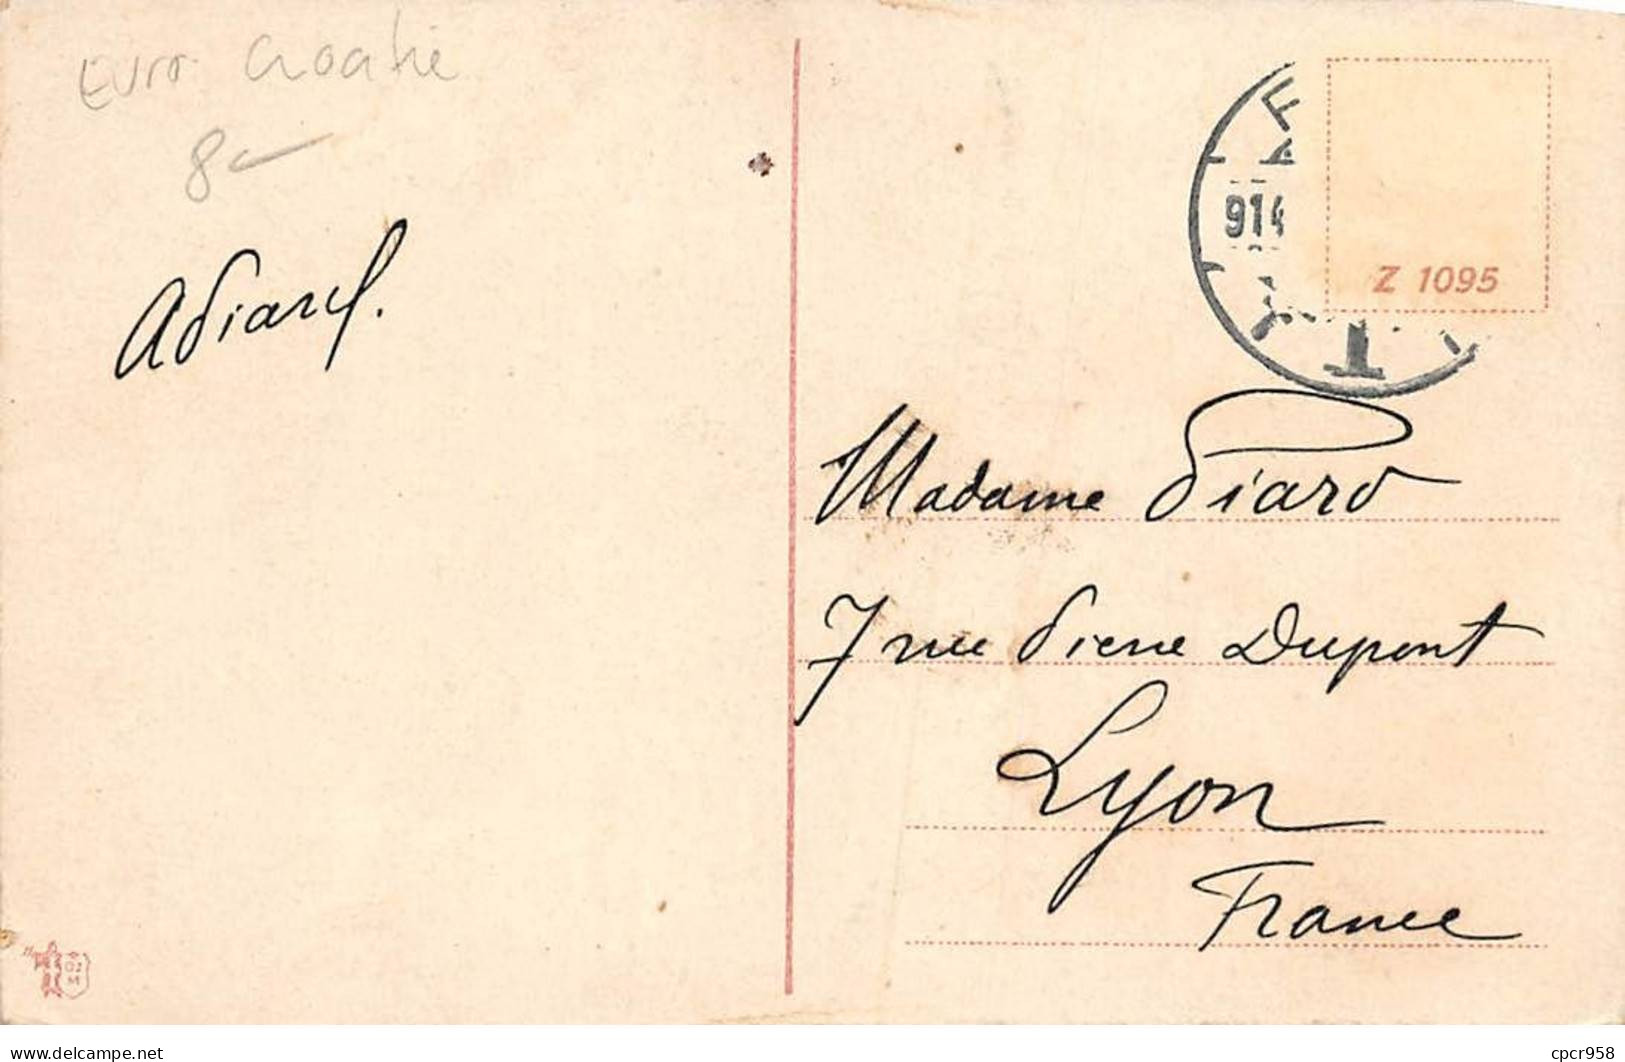 Euro Croatie
8
APiard.
914
Z 1095
Madame Piard
7 rue Pierre Dupont
Lyon
France
www.delcampe.net
cpcr958